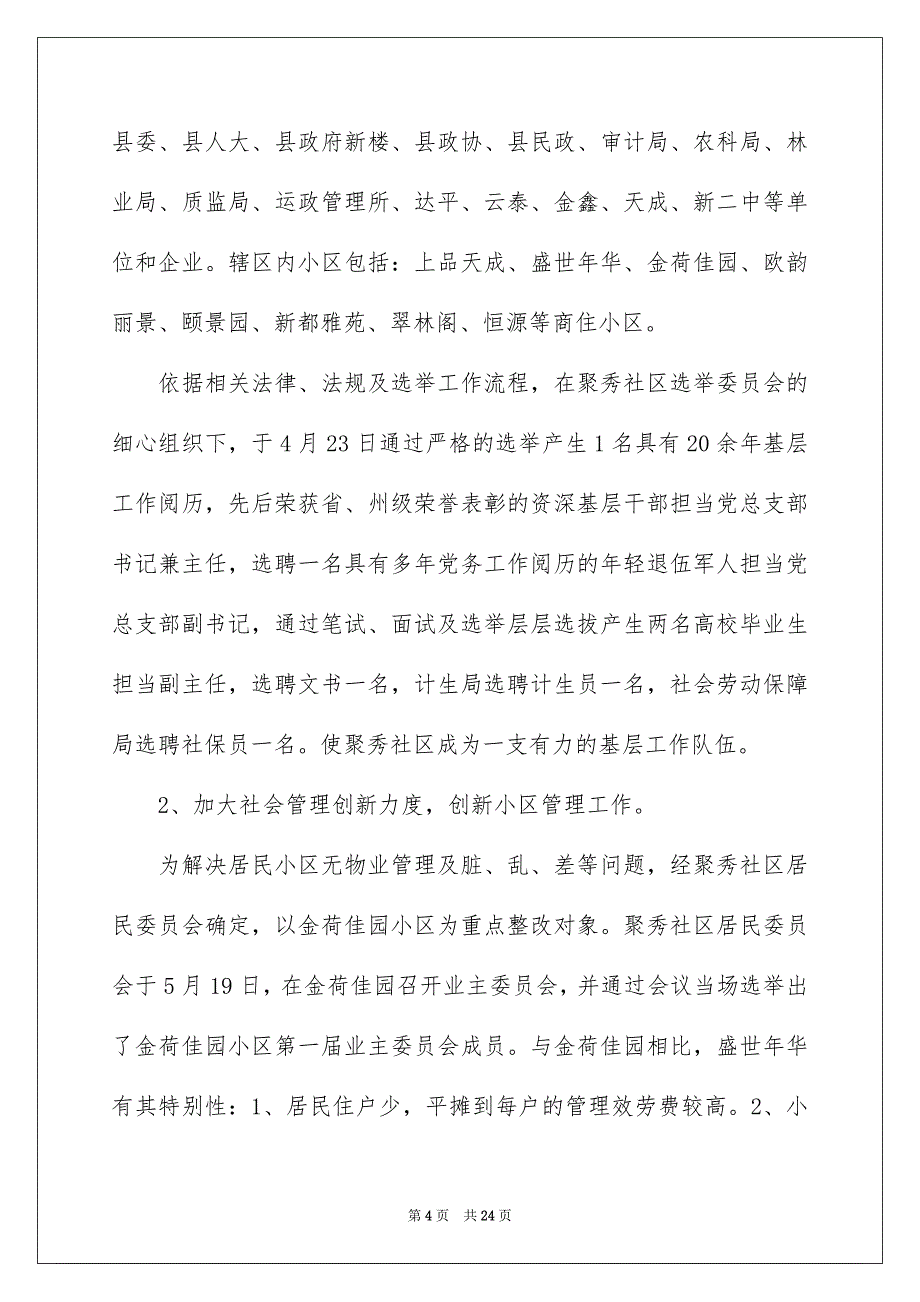 县委、县人大、县政府新楼、县政协、县民政、审计局、农科局、林
业局、质监局、运政管理所、达平、云泰、金鑫、天成、新二中等单
位和企业。辖区内小区包括：上品天成、盛世年华、金荷佳园、欧韵
丽景、颐景园、新都雅苑、翠林阁、恒源等商住小区。
依据相关法律、法规及选举工作流程，在聚秀社区选举委员会的
细心组织下，于 4 月 23 日通过严格的选举产生 1 名具有 20 余年基层
工作阅历，先后荣获省、州级荣誉表彰的资深基层干部担当党总支部
书记兼主任，选聘一名具有多年党务工作阅历的年轻退伍军人担当党
总支部副书记，通过笔试、面试及选举层层选拔产生两名高校毕业生
担当副主任，选聘文书一名，计生局选聘计生员一名，社会劳动保障
局选聘社保员一名。使聚秀社区成为一支有力的基层工作队伍。
2、加大社会管理创新力度，创新小区管理工作。
为解决居民小区无物业管理及脏、乱、差等问题，经聚秀社区居
民委员会确定，以金荷佳园小区为重点整改对象。聚秀社区居民委员
会于 5 月 19 日，在金荷佳园召开业主委员会，并通过会议当场选举出
了金荷佳园小区第一届业主委员会成员。与金荷佳园相比，盛世年华
有其特别性：1、居民住户少，平摊到每户的管理效劳费较高。2、小
第 4 页 共 24 页